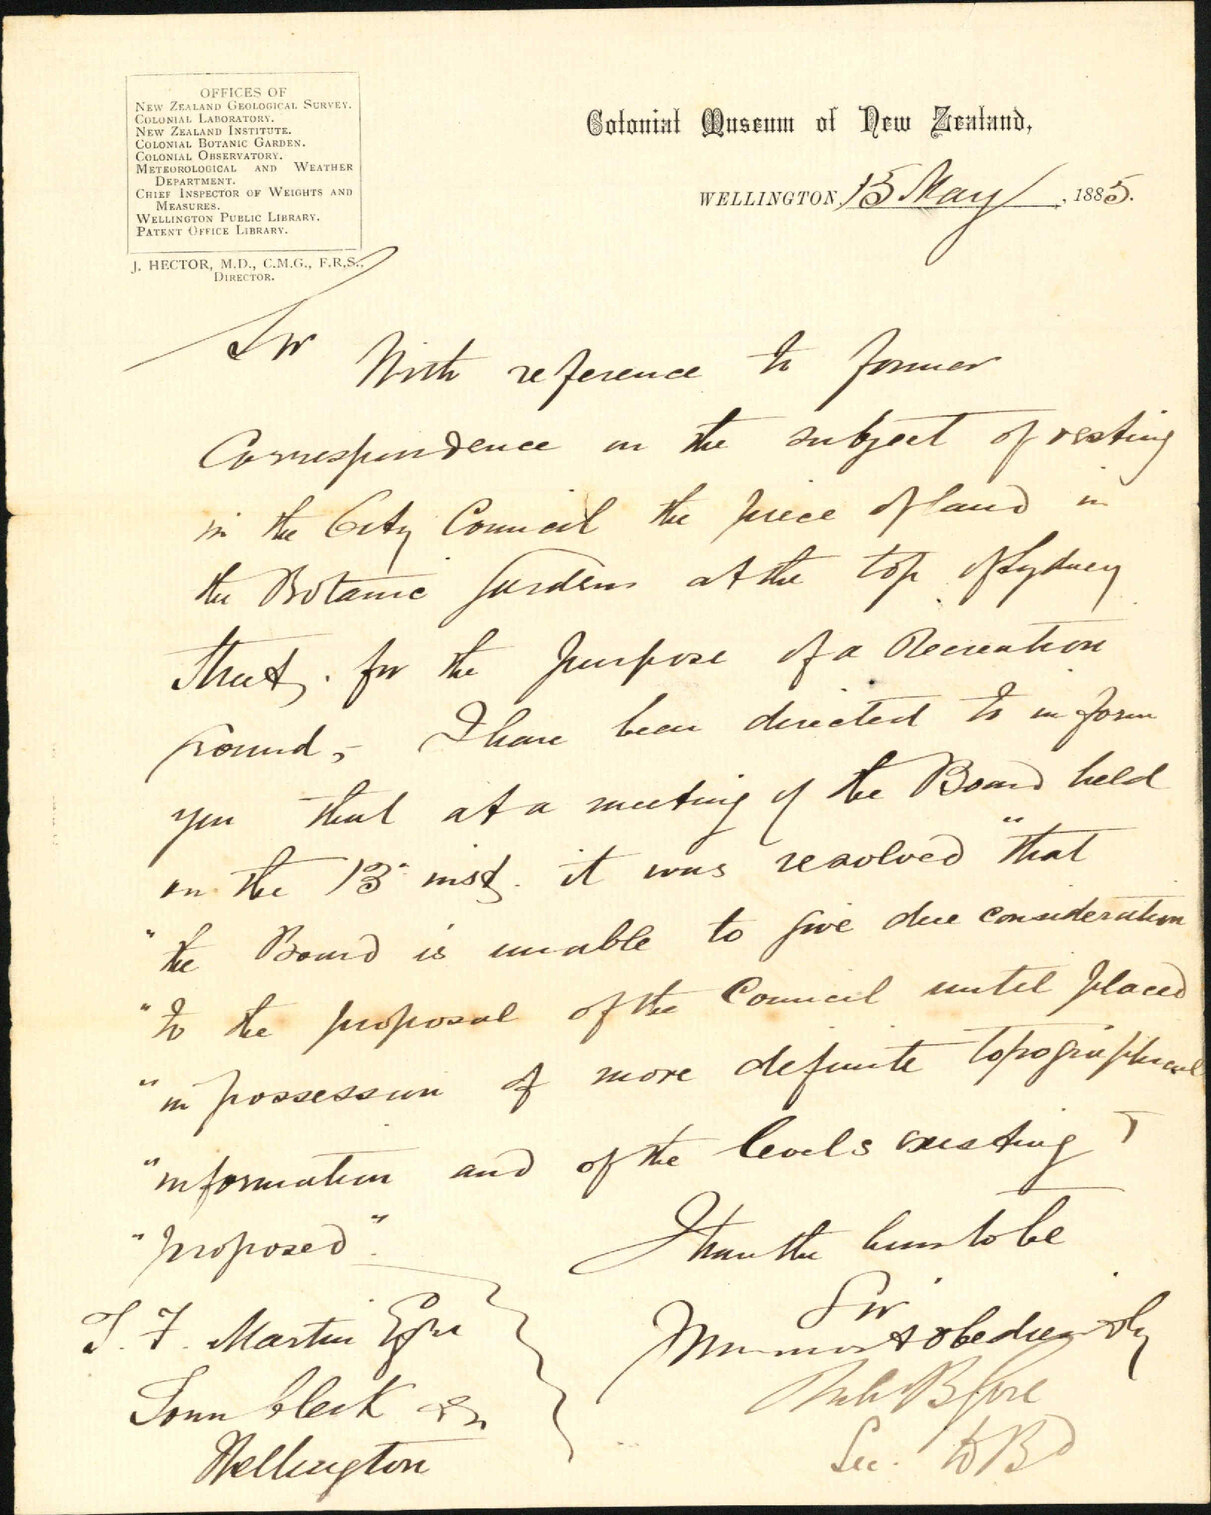 OFFICES OF
NEW ZEALAND GEOLOGICAL SURVEY.
COLONIAL LABORATORY.
NEW ZEALAND INSTITUTE.
COLONIAL BOTANIC GARDEN.
COLONIAL OBSERVATORY.
METEOROLOGICAL AND WEATHER
DEPARTMENT.
CHIEF INSPECTOR OF WEIGHTS AND
MEASURES.
WELLINGTON PUBLIC LIBRARY.
PATENT OFFICE LIBRARY.
J. HECTOR, M.D., C.M.G., F.R.S.,
DIRECTOR.
Colonial Museum of New Zealand,
WELLINGTON, 15 May, 1885.
Sir
With reference to former
Correspondence on the subject of vesting
in the City Council the piece of land in
the Botanic Gardens at the top of Sydney
Street, for the purpose of a Recreation
Ground, I have been directed to inform
you that at a meeting of the Board held
on the 13 inst. it was resolved "that
"the Board is unable to give due consideration
"to the proposal of the Council until placed
"in possession of more definite topographical
"information and of the levels existing &
"proposed".
I have the honor to be
Sir
Your most obediently
B Gore
Sec. to Bd
T. F. Martin Esqre
Town Clerk &c
Wellington